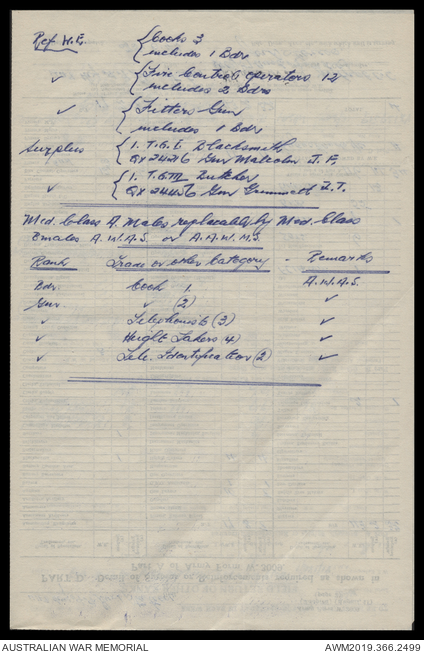 Ref W.E. { Cooks 3
includes 1 Bdr
✓ { Fire Control operators 12
includes 2 Bdrs
✓ { Fitters Gun
includes 1 Bdr
Surplus { 1. T.G.I Blacksmith
QX 24416 Gnr Malcolm J. F.
✓ { 1. T.G.III Butcher
QX 24456 Gnr Grummett L.T.
Med. Class A. Males replaceable by Med. Class
Emales A.W.A.S. or A.A.W.M.S.
Rank Trade or other Category - Remarks
Bdr. Cook 1. A.W.A.S.
Gnr ✓ (2) ✓
✓ Telephonist (3) ✓
✓ Height Takers (4) ✓
✓ Tele. Identification (2) ✓
AUSTRALIAN WAR MEMORIAL AWM2019.366.2499